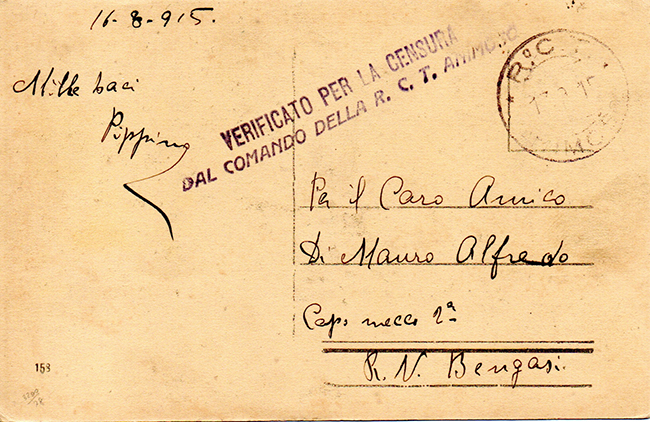 16-8-915.
Mille baci
Pippino
VERIFICATO PER LA CENSURA
DAL COMANDO DELLA R. C. T. ANIMOSO
R. C. T.
Per il Caro Amico
Di Mauro Alfredo
Capo mecco 2ª
R. N. Bengasi
158